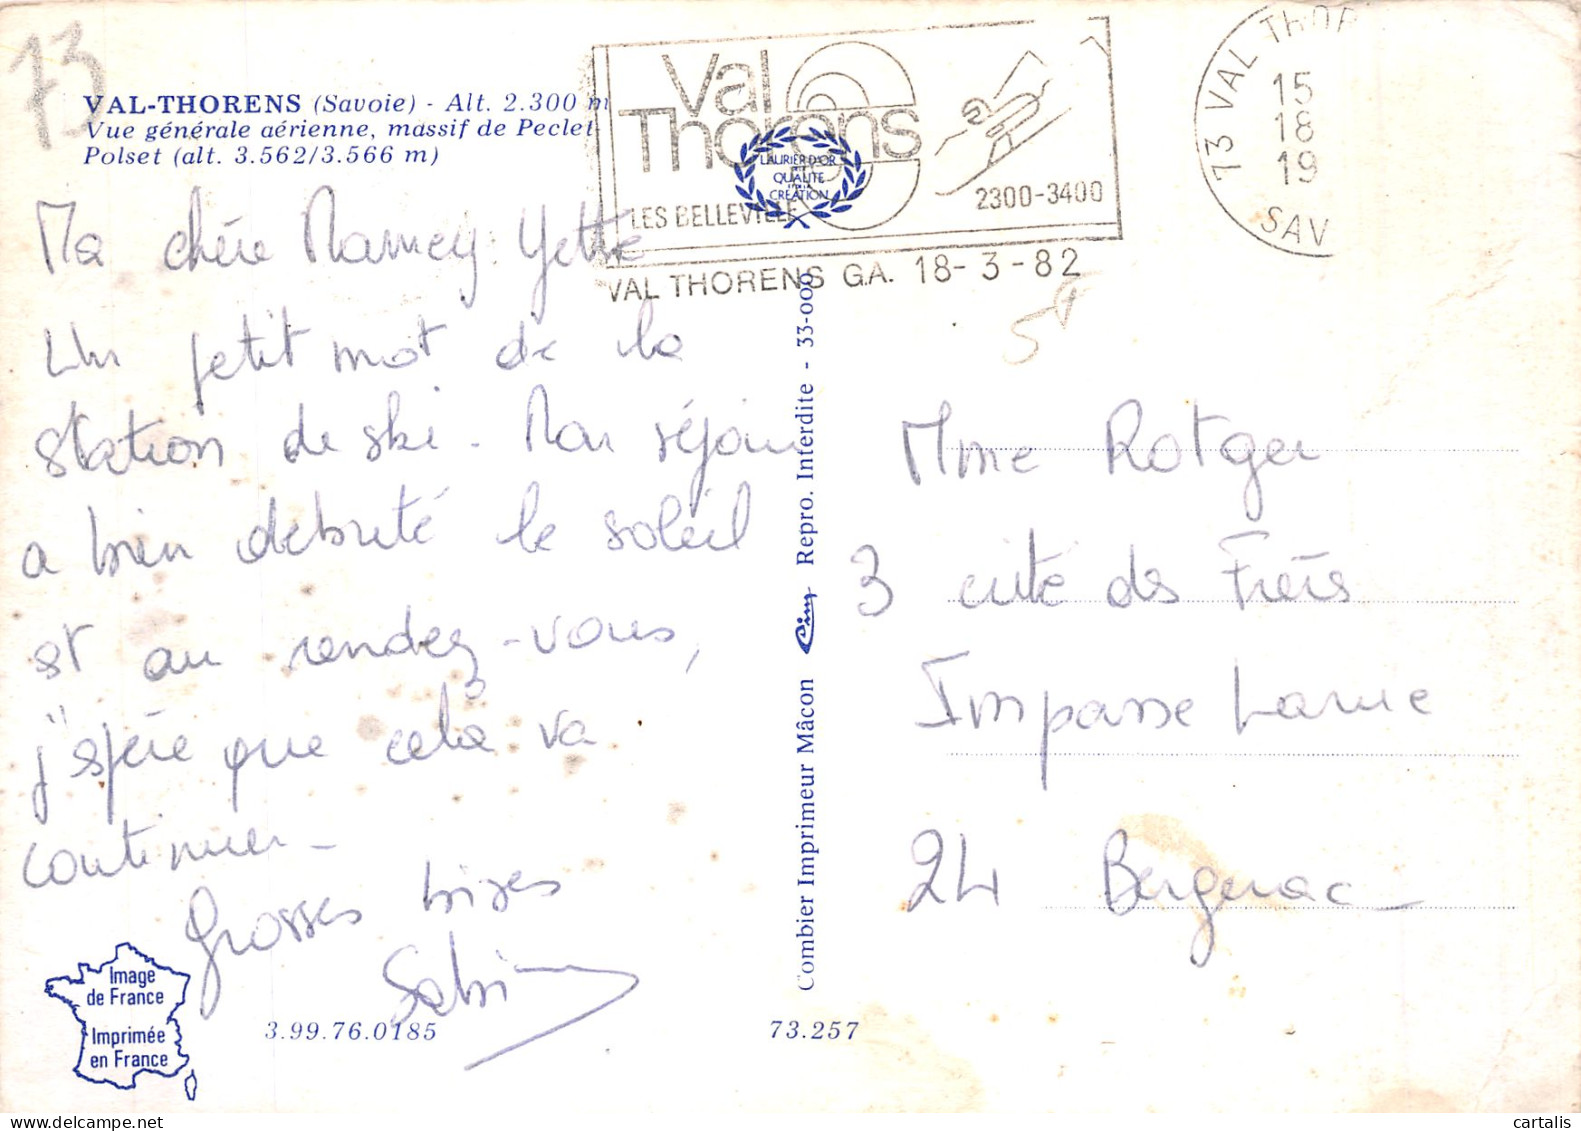 73
VAL-THORENS (Savoie) - Alt. 2.300 m
Vue générale aérienne, massif de Peclet-
Polset (alt. 3.562/3.566 m)
Val
Thorens
LES BELLEVILLE
2300-3400
VAL THORENS G.A. 18-3-82
LAURIER D'OR
QUALITE
CREATION
73 VAL THOR
15
18
19
SAV
Ma chère Mamey Yette
Un petit mot de la
station de ski. Mon séjour
a bien debuté le soleil
st au rendez-vous,
j'espère que cela va
continuer_
Grosses bises
Sabri
Mme Rotger
3 cité des Frères
Impasse Larue
24 Bergerac_
Combier Imprimeur Mâcon Cim Repro. Interdite - 33-000
Image
de France
Imprimée
en France
3.99.76.0185
73.257
cartalis